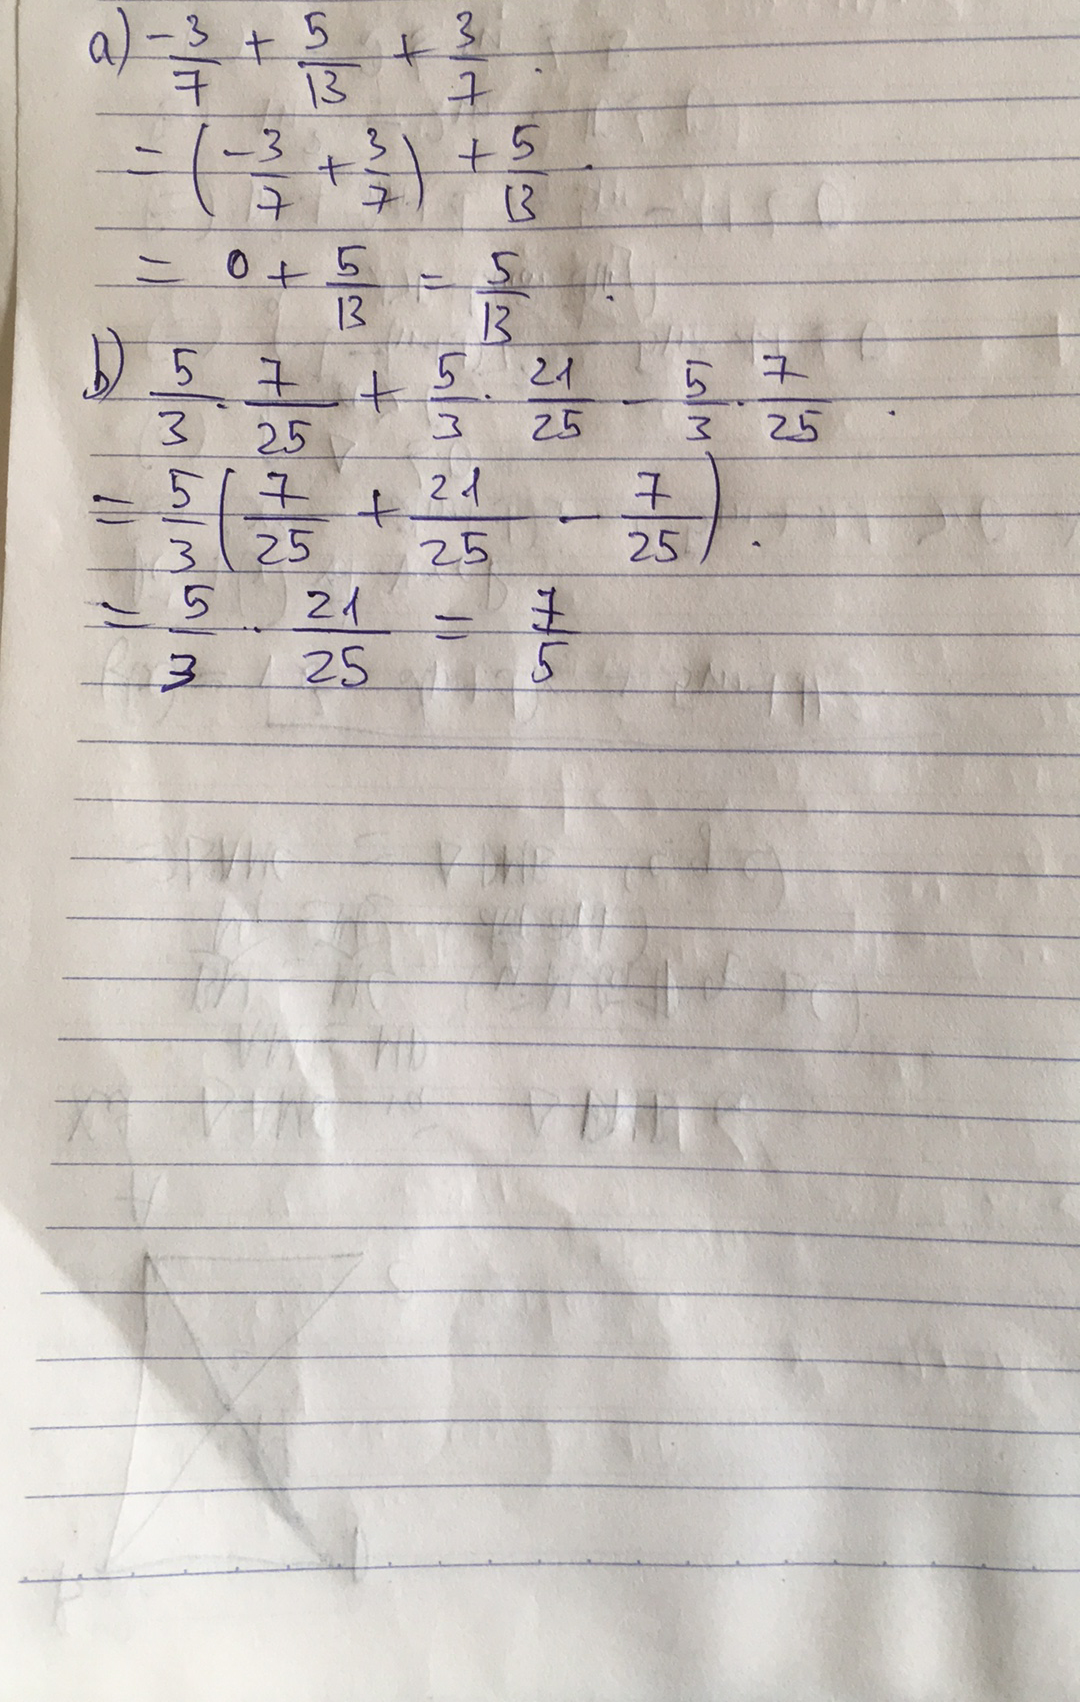 a) -3/7 + 5/13 + 3/7 .
= (-3/7 + 3/7) + 5/13 .
= 0 + 5/13 = 5/13 .
b) 5/3 . 7/25 + 5/3 . 21/25 - 5/3 . 7/25 .
= 5/3 (7/25 + 21/25 - 7/25) .
= 5/3 . 21/25 = 7/5